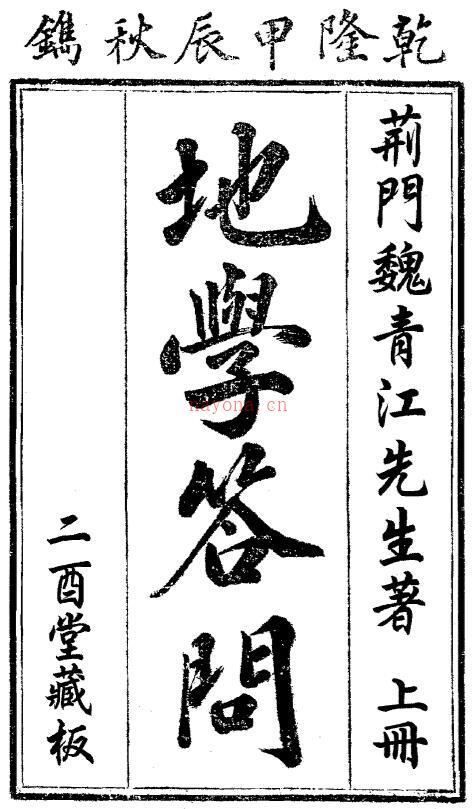 乾隆甲辰秋鐫
荆門魏青江先生著 上冊
地學答問
二酉堂藏板
nayona.cn